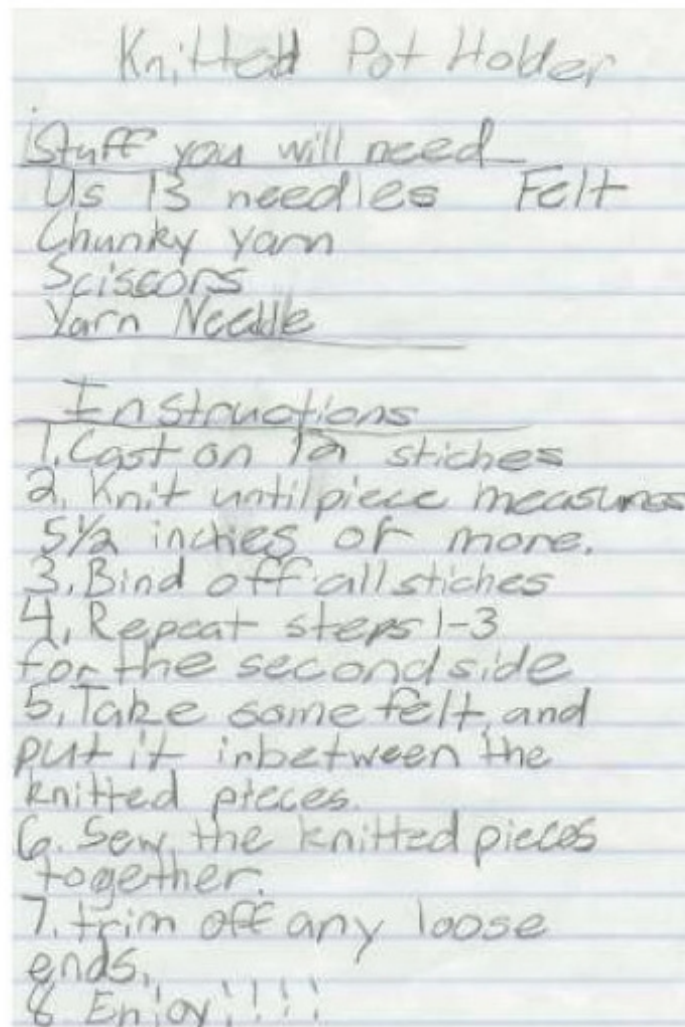 Knitted Pot Holder
Stuff you will need
Us 13 needles Felt
Chunky yarn
Scissors
Yarn Needle
Instructions
1. Cast on 12 stiches
2. Knit until piece measures
5 1/2 inches or more.
3. Bind off all stiches
4. Repeat steps 1-3
for the second side
5. Take some felt, and
put it inbetween the
knitted pieces.
6. Sew the knitted pieces
together.
7. trim off any loose
ends.
8 Enjoy!!!!